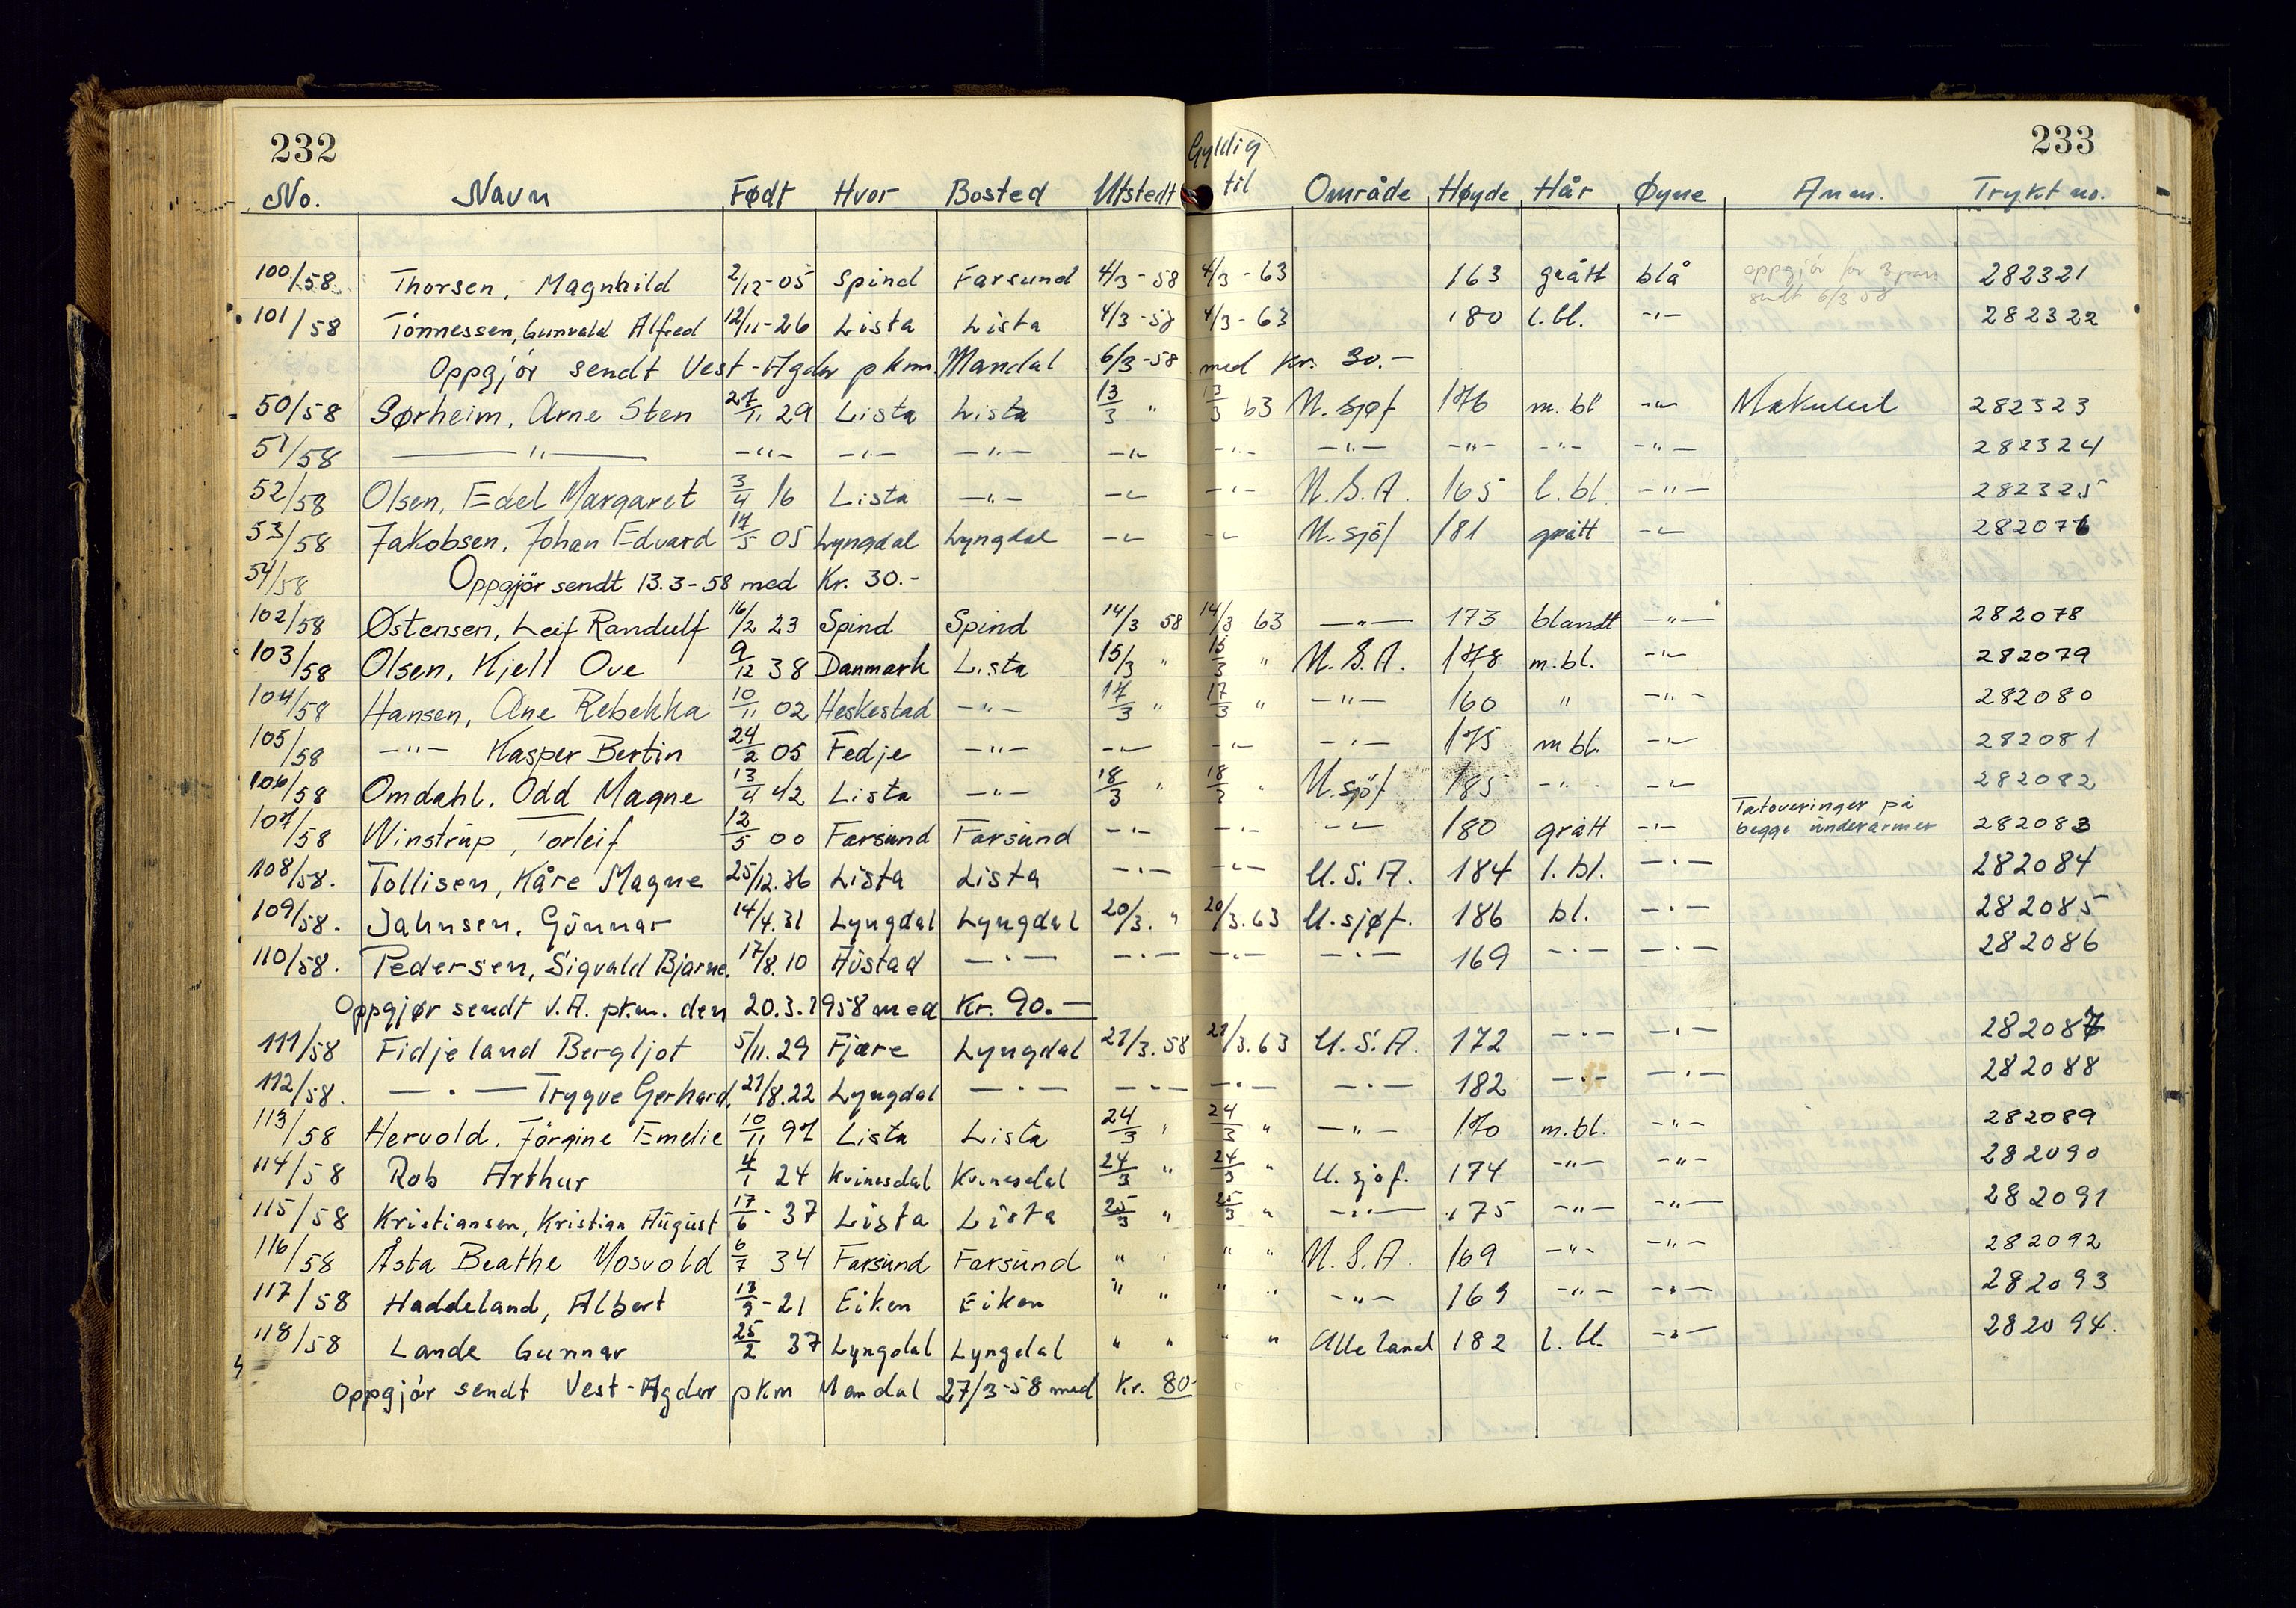 232
Gyldig
233
No. Navn Født Hvor Bosted Utstedt til Område Høyde Hår Øyne Anm. Trykt no.
100/58 Thorsen, Magnhild 2/12-05 Spind Farsund 4/3-58 4/3-63 163 grått blå oppgjör for 3 pass 282321
sendt 6/3 58
101/58 Tönnessen, Gunvald Alfred 12/11-26 Lista Lista 4/3-58 4/3-63 180 l.bl. -"- 282322
Oppgjör sendt Vest-Agder pkm. Mandal 6/3-58 med Kr. 30.-
50/58 Sørheim, Arne Sten 27/11 29 Lista Lista 13/3 " 13/3 63 U. sjøf 176 m. bl -"- Makulert 282323
51/58 -"- -"- -"- -"- -"- -"- -"- -"- -"- -"- 282324
52/58 Olsen, Edel Margaret 3/4 16 Lista -"- -"- -"- U.S.A. 165 l. bl. -"- 282325
53/58 Jakobsen, Johan Edvard 17/5 05 Lyngdal Lyngdal -"- -"- U. sjöf 181 grått -"- 282076
54/58 Oppgjör sendt 13.3-58 med Kr. 30.-
102/58 Østensen, Leif Randulf 16/2 23 Spind Spind 14/3 58 14/3 63 -"- 173 blandt -"- 282078
103/58 Olsen, Kjell Ove 9/12 38 Danmark Lista 15/3 " 15/3 " U.S.A. 178 m.bl. -"- 282079
104/58 Hansen, Ane Rebekka 10/11 02 Heskestad -"- 17/3 " 17/3 " -"- 160 " -"- 282080
105/58 -"- Kasper Bertin 24/2 05 Fedje -"- -"- -"- -"- 175 m bl. -"- 282081
106/58 Omdahl, Odd Magne 13/4 42 Lista -"- 18/3 " 18/3 " U. sjöf 185 -"- -"- 282082
107/58 Winstrup, Torleif 12/5 00 Farsund Farsund -"- -"- -"- 180 grått -"- Tatoveringer på begge underarmer 282083
108/58. Tollisen, Kåre Magne 25/12.36 Lista Lista -"- -"- U.S.A. 184 l. bl. -"- 282084
109/58. Jahnsen, Gunnar 14/4.31 Lyngdal Lyngdal 20/3. " 20/3.63 U. sjøf. 186 bl. -"- 282085
110/58. Pedersen, Sigvald Bjarne. 17/8.10 Austad -"- -"- -"- -"- 169 -"- -"- 282086
Oppgjør sendt V.A. pk.m. den 20.3.1958 med Kr. 90.-
111/58 Fidjeland Bergljot 5/11.29 Fjære Lyngdal 21/3.58 21/3.63 U.S.A. 172 -"- -"- 282087
112/58. -"- Trygve Gerhard. 21/8.22 Lyngdal -"- -"- -"- -"- 182 -"- -"- 282088
113/58 Hervold, Jörgine Emelie 10/11 97 Lista Lista 24/3 " 24/3 " -"- 170 m.bl. -"- 282089
114/58 Rob Arthur 4/1 24 Kvinesdal Kvinesdal 24/3 " 24/3 " U. sjöf. 174 -"- -"- 282090
115/58 Kristiansen, Kristian August 17/6-37 Lista Lista 25/3 " 25/3 " -"- 175 -"- -"- 282091
116/58 Åsta Beathe Mosvold 6/7 34 Farsund Farsund " " " " U.S.A. 169 -"- -"- 282092
117/58 Haddeland, Albert 13/9-21 Eiken Eiken " " " " -"- 169 -"- -"- 282093
118/58 Lande Gunnar 25/2 37 Lyngdal Lyngdal " " " " Alle land 182 l. bl. -"- 282094.
Oppgjör sendt Vest-Agder pkm Mandal 27/3-58 med Kr. 80-